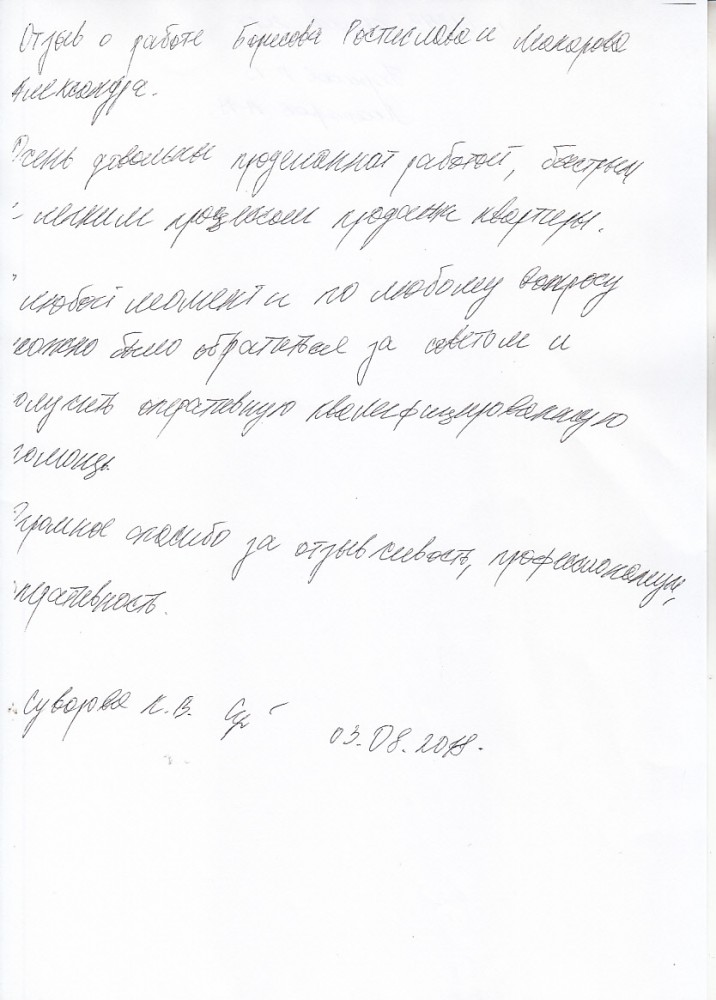 Отзыв о работе Борисова Ростислава и Макарова
Александра.
Очень довольны проделанной работой, быстрым
и легким процессом продажи квартиры.
В любой момент и по любому вопросу
можно было обратиться за советом и
получить оперативную квалифицированную
помощь.
Огромное спасибо за отзывчивость, профессионализм,
оперативность.
Суворова К.В.
03.08.2018.